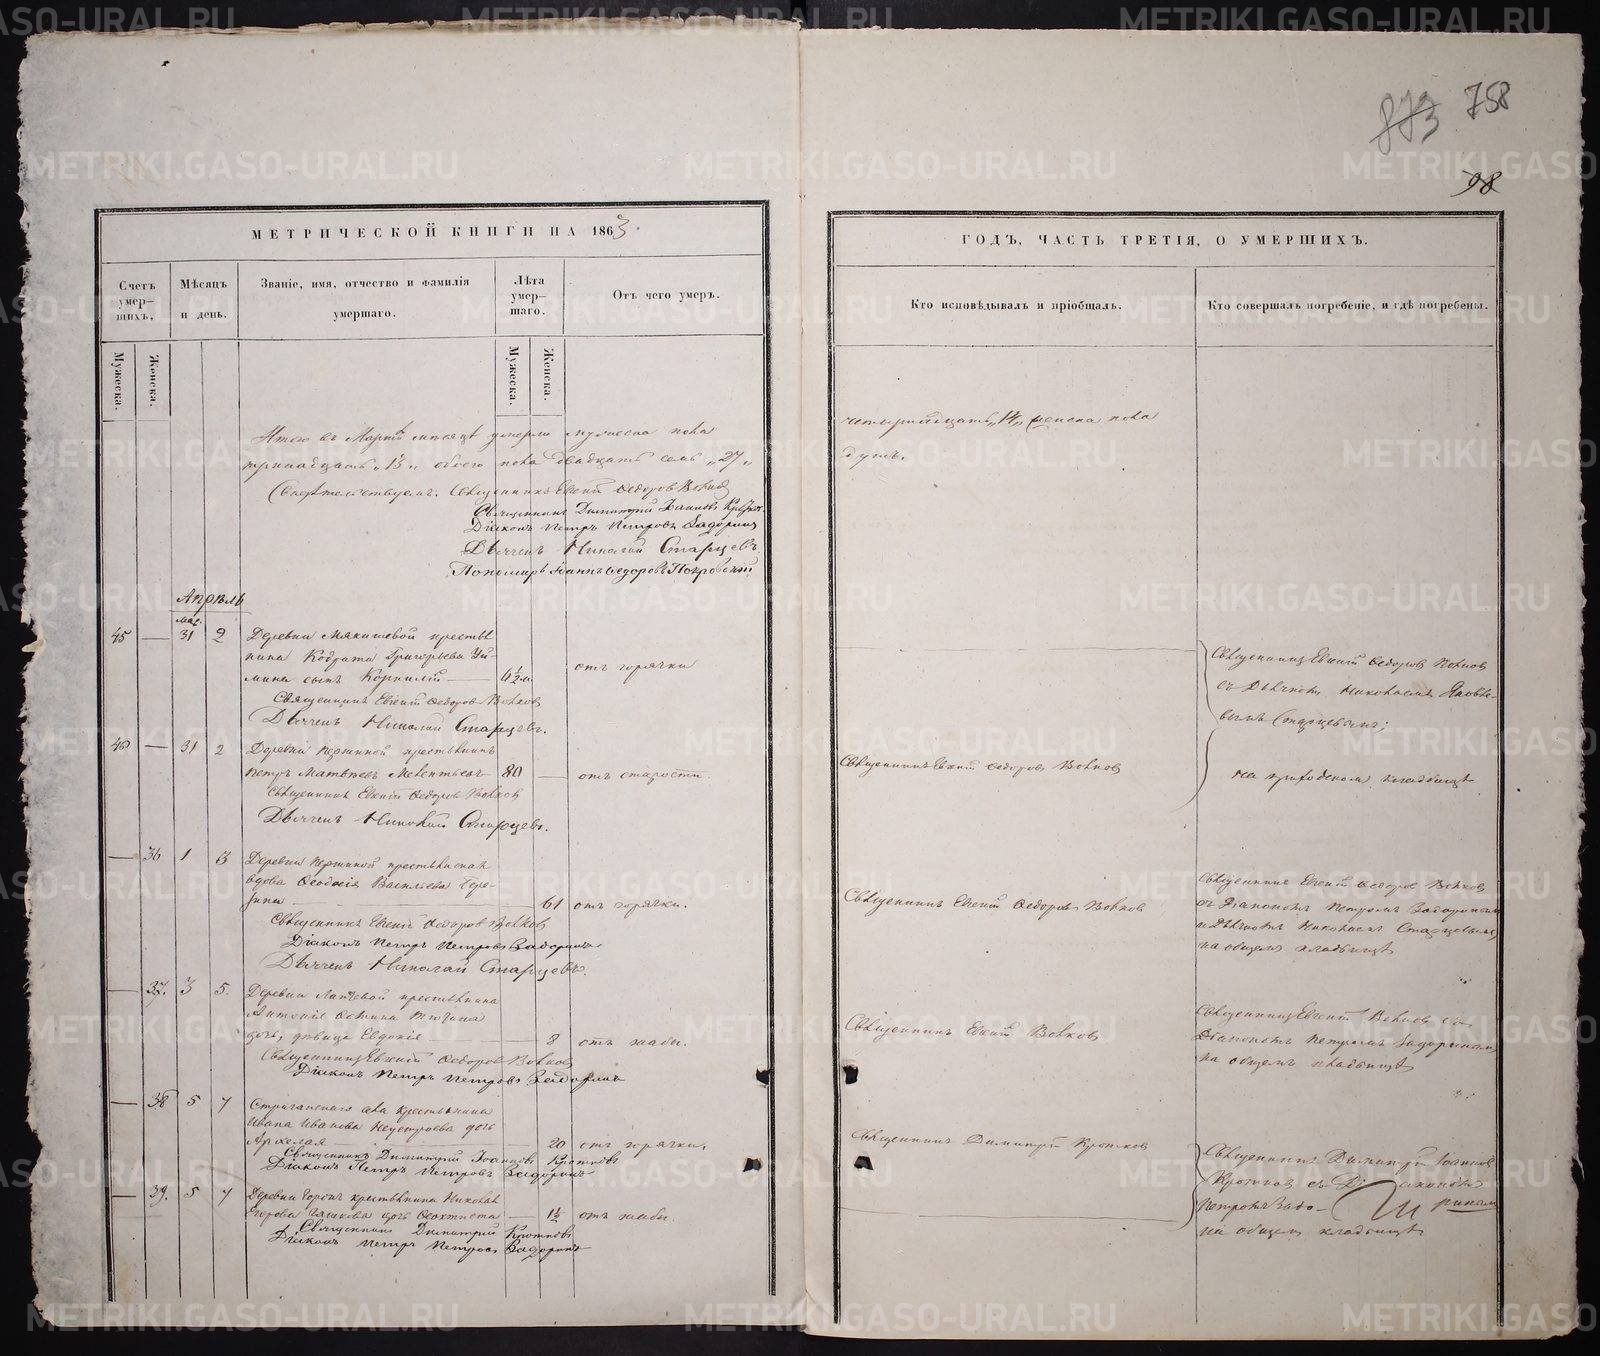 873 758
98
МЕТРИЧЕСКОЙ КНИГИ НА 1863
ГОДЪ, ЧАСТЬ ТРЕТІЯ, О УМЕРШИХЪ.
Счетъ умер-
шихъ.
Мѣсяцъ
и день.
Званіе, имя, отчество и фамилія
умершаго.
Лѣта
умер-
шаго.
Отъ чего умеръ.
Кто исповѣдывалъ и пріобщалъ.
Кто совершалъ погребеніе, и гдѣ погребены.
Мужеска.
Женска.
Мужеска.
Женска.
Итого въ Мартѣ мѣсяцѣ умерло мужеска пола
четырнадцать „14„ женска пола
тринадцать „13„ обоего пола двадцать семь „27„
душъ.
Свидѣтельствуемъ: Священникъ Евгеній Ѳедоровъ Волковъ
Священникъ Димитрій Іоанновъ
Діаконъ Петръ Петровъ Задоринъ
Дьячекъ Николай Старцевъ
Пономарь Іоаннъ Ѳедоровъ Покровскій
Апрѣль
мар.
45 — 31 2 Деревни Мякишевой крестья
нина Кодрата Григорьева Уй-
мина сынъ Корнилій — 6½ м. отъ горячки
Священникъ Евгеній Ѳедоровъ Волковъ
Дьячекъ Николай Старцевъ.
Священникъ Евгеній Ѳедоровъ Волковъ
съ Дьячкомъ Николаемъ Яковле-
вымъ Старцевымъ;
на приходскомъ кладбищѣ
46 — 31 2 Деревни крестьянинъ
Петръ Матвѣевъ — 80 — отъ старости.
Священникъ Евгеній Ѳедоровъ Волковъ
Священникъ Евгеній Ѳедоровъ Волковъ
Дьячекъ Николай Старцевъ.
— 36 1 3 Деревни крестьянская
вдова Ѳеодосія Васильева
— 61 отъ горячки.
Священникъ Евгеній Ѳедоровъ Волковъ
Діаконъ Петръ Петровъ Задоринъ
Дьячекъ Николай Старцевъ.
Священникъ Евгеній Ѳедоровъ Волковъ
Священникъ Евгеній Ѳедоровъ Волковъ
съ Діакономъ Петромъ Задоринымъ
и Дьячкомъ Николаемъ Старцевымъ
на общемъ кладбищѣ
— 37. 3 5. Деревни крестьянина
дочь, дѣвица Евдокія — 8 отъ жабы.
Священникъ Евгеній Ѳедоровъ Волковъ
Діаконъ Петръ Петровъ Задоринъ
Священникъ Евгеній Волковъ
Священникъ Евгеній Волковъ съ
Діакономъ Петромъ Задоринымъ
на общемъ кладбищѣ
— 38 5 7 Стриганскаго села крестьянина
Ивана Иванова Неустроева дочь
— 20 отъ горячки.
Священникъ Димитрій Іоанновъ Кротковъ
Діаконъ Петръ Петровъ Задоринъ
Священникъ Димитрій Кротковъ
Священникъ Димитрій Іоанновъ
Кротковъ съ Діакономъ
Петромъ Задо-
ринымъ
на общемъ кладбищѣ
— 39. 5 7 Деревни крестьянина
Егорова дочь — 1½ отъ жабы.
Священникъ Димитрій Кротковъ
Діаконъ Петръ Петровъ Задоринъ
METRIKI.GASO-URAL.RU